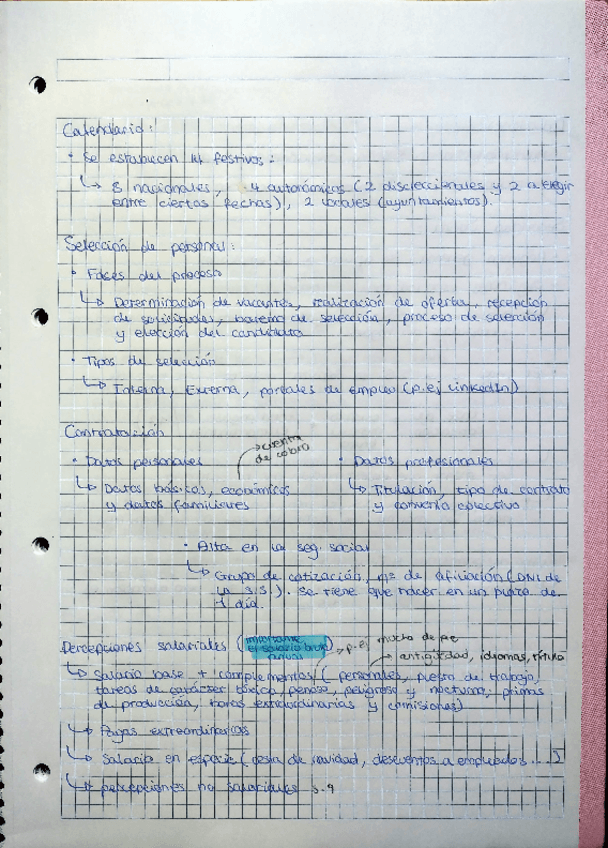 Calendario:
• Se establecen 14 festivos:
↳ 8 nacionales, 4 autonómicos (2 discreccionales y 2 a elegir
entre ciertas fechas), 2 locales (ayuntamientos).
Selección de personal:
• Fases del proceso
↳ Determinación de vacantes, realización de oferta, recepción
de solicitudes, baremo de selección, proceso de selección
y elección del candidato
• Tipos de selección
↳ Interna, Externa, portales de empleo (p.ej LinkedIn)
Contratación
→ cuenta
de cobro
• Datos personales
↳ Datos básicos, económicos
y datos familiares
• Datos profesionales
↳ Titulación, tipo de contrato
y convenio colectivo
• Alta en la seg. social
↳ Grupo de cotización, nº de afiliación (DNI de
la S.S.). Se tiene que hacer en un plazo de
1 día.
Percepciones salariales (importante
el salario bruto
anual)
→ p.ej mucho de pie
→ antigüedad, idiomas, título
↳ Salario base + complementos (personales, puesto de trabajo,
tareas de carácter tóxico, penoso, peligroso y nocturno, primas
de producción, horas extraordinarias y comisiones)
↳ Pagas extraordinarias
↳ Salario en especie (cesta de navidad, descuentos a empleados ...)
↳ percepciones no salariales